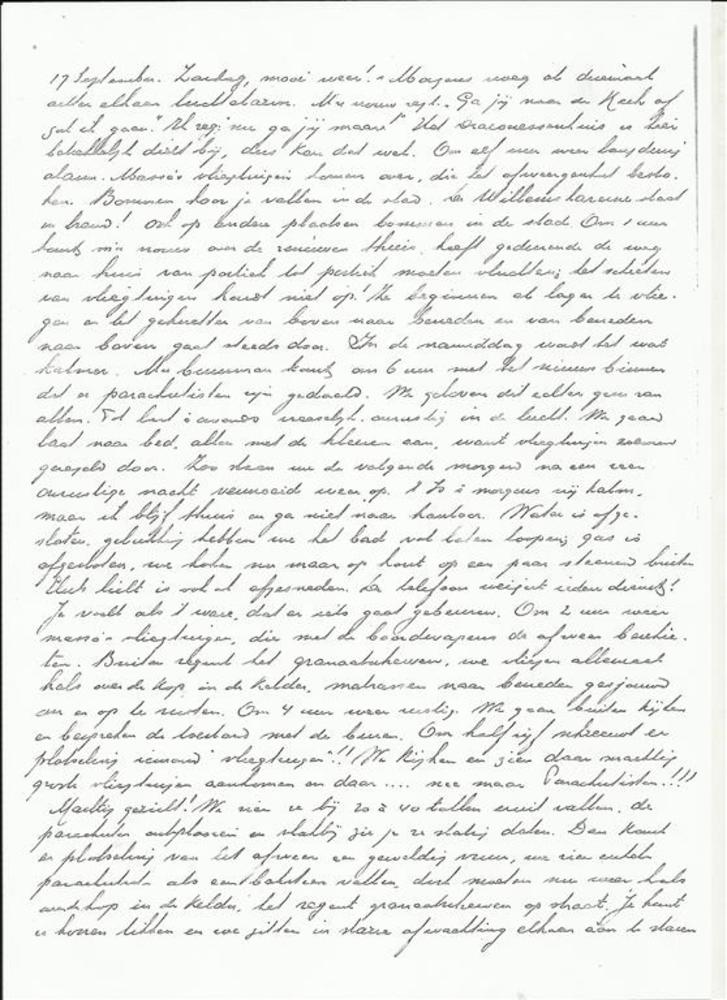 17 September. Zondag, mooi weer! 's Morgens vroeg al driemaal
achter elkaar luchtalarm. M'n vrouw zegt: "Ga jij naar de Kerk of
zal ik gaan." Ik zeg: "nu ga jij maar!" Het Diaconessenhuis is hier
betrekkelijk dicht bij, dus kan dat wel. Om elf uur weer langdurig
alarm. Massa's vliegtuigen komen over, die het afweergeschut bescho-
ten. Bommen hoor je vallen in de stad. De Willemskazerne staat
in brand! Ook op andere plaatsen bommen in de stad. Om 1 uur
komt m'n vrouw over de zenuwen thuis, heeft gedurende de weg
naar huis van portiek tot portiek moeten vluchten; het schieten
van vliegtuigen houdt niet op! Ze beginnen al lager te vlie-
gen en het geknetter van boven naar beneden en van beneden
naar boven gaat steeds door. In de namiddag wordt het wat
kalmer. M'n buurman komt om 6 uur met het nieuws binnen
dat er parachutisten zijn gedaald. We gelooven dit echter geen van
allen. Het is 's avonds vreeselijk onrustig in de lucht. We gaan
laat naar bed, allen met de kleeren aan, want vliegtuigen zoemen
geregeld door. Zoo staan we de volgende morgen na een zeer
onrustige nacht vermoeid weer op. 't Is 's morgens vrij kalm,
maar ik blijf thuis en ga niet naar kantoor. Water is afge-
sloten, gelukkig hebben we het bad vol laten loopen; gas is
afgesloten, we koken nu maar op hout op een paar steenen buiten
Het licht is ook al afgesneden. De telefoon weigert iederen dienst!
Je voelt als 't ware, dat er iets gaat gebeuren. Om 2 uur weer
massa's vliegtuigen, die met de boordwapens de afweer beschie-
ten. Buiten regent het granaatscherven, we vliegen allemaal
hals over de kop in de kelder, matrassen naar beneden gesjouwd
om er op te rusten. Om 4 uur weer rustig. We gaan buiten kijken
en bespreken de toestand met de buren. Om half vijf schreeuwt er
plotseling iemand "vliegtuigen"!! We kijken en zien daar machtig
groote vliegtuigen aankomen en daar .... nee maar Parachutisten!!!
Machtig gezicht! We zien ze bij 20 à 40 tallen eruit vallen, de
parachutes ontplooien en vlakbij zie je ze statig dalen. Dan komt
er plotseling van het afweer een geweldig vuur, we zien enkele
parachutisten als een baksteen vallen, doch moeten nu weer hals
over de kop in de kelder, het regent granaatscherven op straat. Je kunt
ze hooren tikken en we zitten in starre afwachting elkaar aan te staren